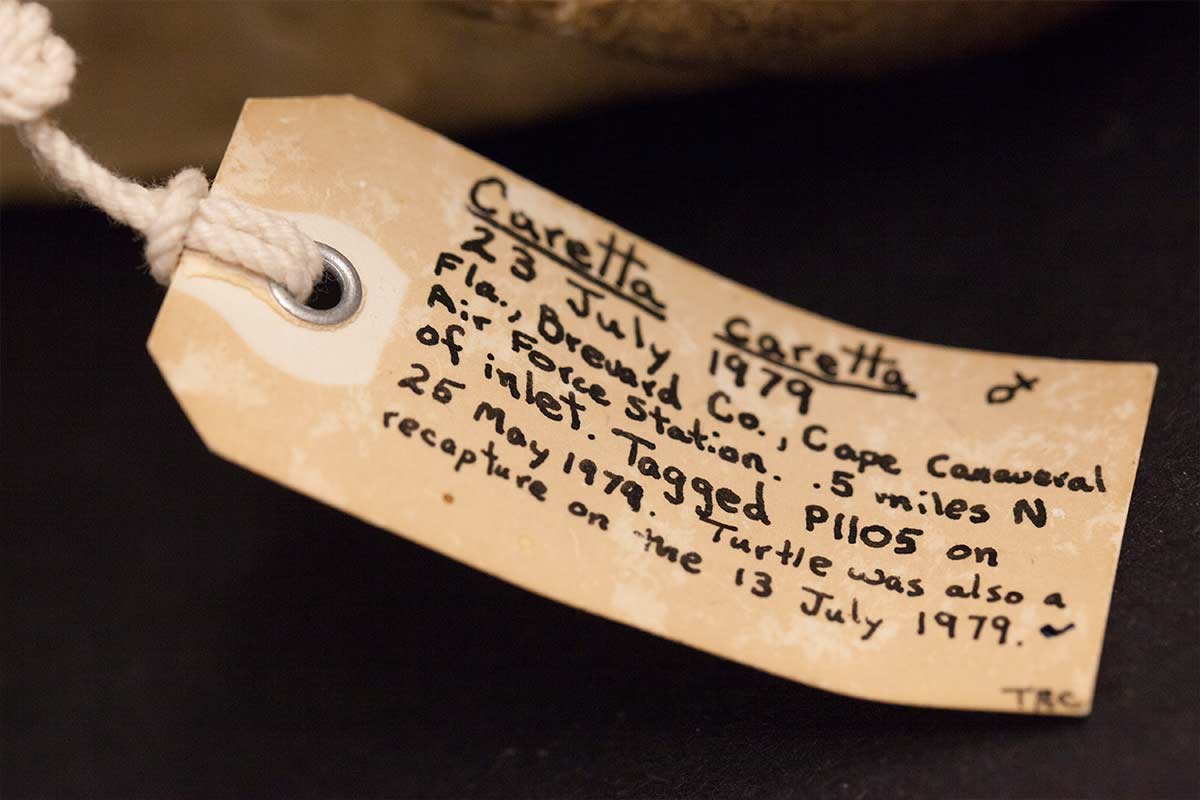 Caretta caretta ♂
23 July 1979
Fla., Brevard Co., Cape Canaveral
Air Force Station. .5 miles N
of inlet. Tagged P1105 on
25 May 1979. Turtle was also a
recapture on the 13 July 1979.
TRC